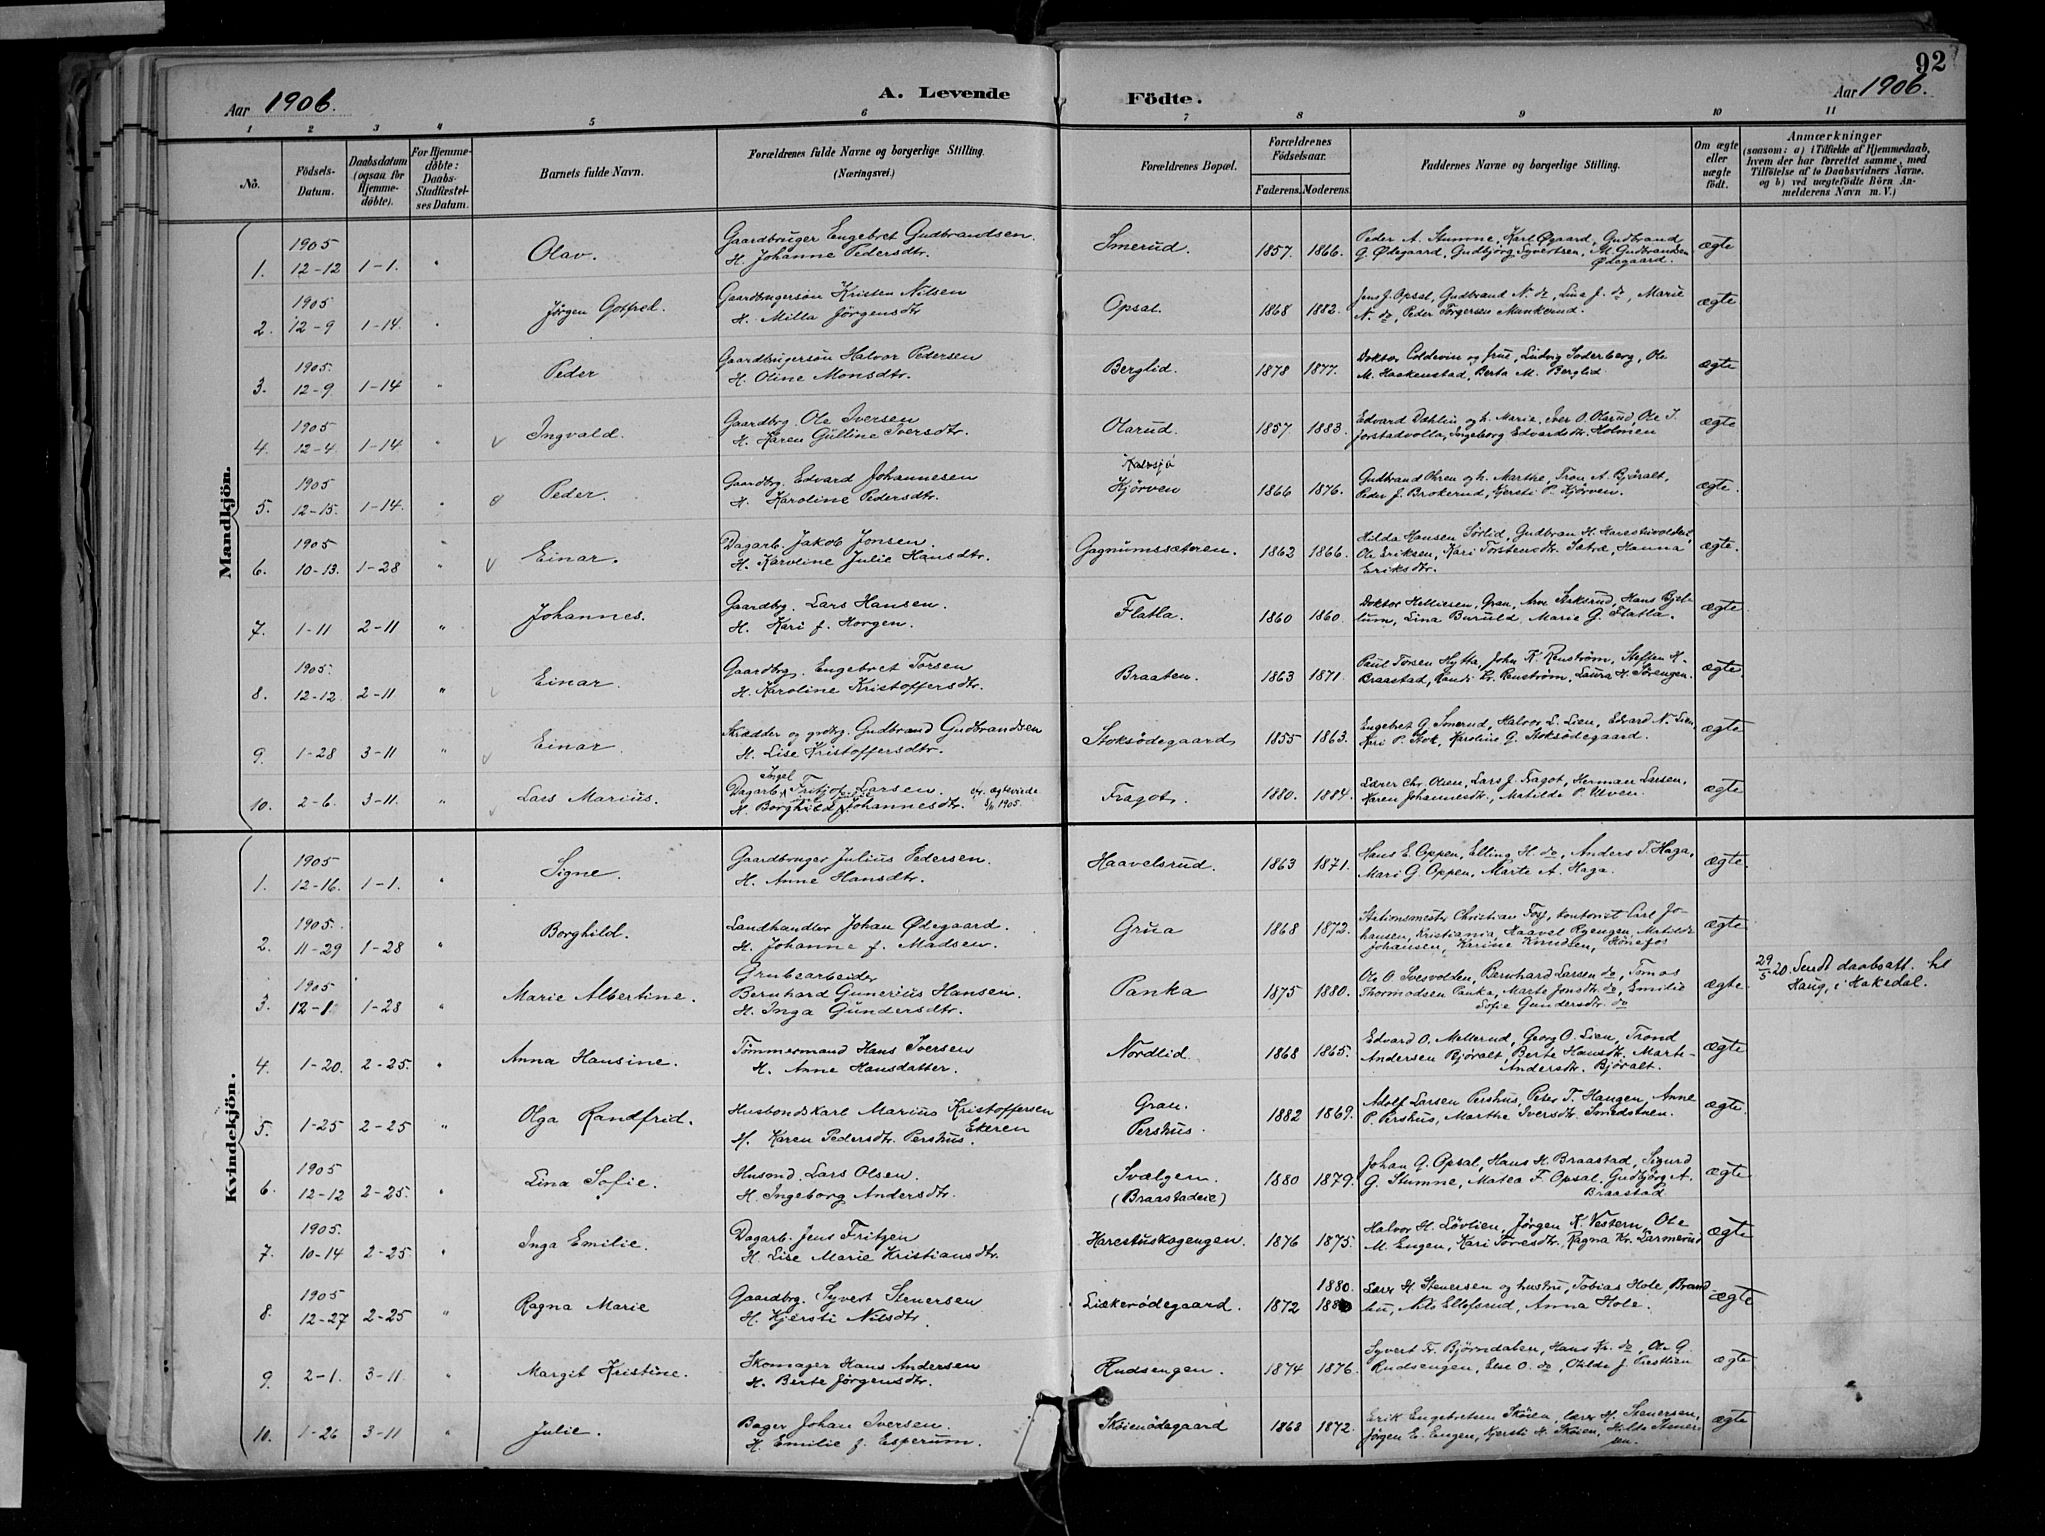 92
Aar 1906. A. Levende Födte. Aar 1906.
1 2 3 4 5 6 7 8 9 10 11
No. Födsels-Datum. Daabsdatum (ogsaa for Hjemmedöbte). For Hjemmedöbte: Daabs-Stadfæstelses Datum. Barnets fulde Navn. Forældrenes fulde Navne og borgerlige Stilling. (Næringsvei.) Forældrenes Bopæl. Forældrenes Födselsaar. Faderens. Moderens. Faddernes Navne og borgerlige Stilling. Om ægte eller uægte födt. Anmærkninger (saasom: a) i Tilfælde af Hjemmedaab, hvem der har forrettet samme, med Tilföielse af to Daabsvidners Navne. og b) ved uægtefödte Börn Anmelderens Navn m. V.)
Mandkjön.
1. 1905 12-12 1-1. " Olav. Gaardbruger Engebret Gudbrandsen. H. Johanne Pedersdtr. Smerud. 1857. 1866. Peder A. Stumne, Karl Øgaard, Gudbrand G. Ødegaard, Gudbjörg Syvertsen, M. Gudbrandsen Ødegaard. ægte
2. 1905 12-9 1-14. " Jörgen Gotfred. Gaardbrugersön Kristen Nilsen H. Milla Jörgensdtr Opsal. 1868 1882. Jens J. Opsal, Gudbrand N. do, Lina J. do, Marie N. do, Peder Torgersen Munkerud. ægte
3. 1905. 12-9 1-14 " Peder Gaardbrugersön Halvor Pedersen H. Oline Monsdtr. Berglid. 1878 1877. Doktor Coldevin og frue, Ludvig Soderberg, Ole M. Haakenstad, Berta M. Berglid. ægte
4. 1905 12-4. 1-14 " Ingvald. Gaardbrg. Ole Iversen H. Karen Gulline Iversdtr. Olarud. 1857. 1883. Edvard Dahlin og h. Marie, Iver O. Olarud, Ole I. Jorstadvolla, Ingeborg Edvardsdtr. Holmen ægte
5. 1905 12-15. 1-14. " Peder. Gaardbrg. Edvard Johannesen H. Karoline Pedersdtr. Kalvsjö Kjörven 1866 1876. Gudbrand Ohren og h. Marthe, Tron A. Björalt, Peder J. Brokerud, Kjersti P. Kjörven. ægte.
6. 1905 10-13. 1-28 " Einar. Dagarb. Jakob Jonsen. H. Karoline Julie Hansdtr. Gagnumssæteren. 1862 1866. Hilda Hansen Sörlid, Gudbran H. Ole Eriksen, Kari Torstensdtr. Hanna Eriksdtr. ægte.
7. 1-11 2-11 " Johannes. Gaardbrg. Lars Hansen. H. Kari f. Horgen. Flatla. 1860 1860. Doktor Gran, Hans Bjeltum, Lina Buruld, Marie G. Flatla. ægte
8. 1905. 12-12. 2-11 " Einar. Gaardbrg. Engebret Torsen H. Karoline Kristoffersdtr. Braaten. 1863 1871. Paul Torsen Hytta, John K. Renström, Steffen H. Braastad, Randi Kr. Renström, Laura H. Sörengen. ægte.
9. 1-28 3-11 " Einar. Skrædder og grdbrg. Gudbrand Gudbrandsen H. Lise Kristoffersdtr. Stoksödegaard 1855 1863. Engebret G. Smerud, Halvor L. Lien, Edvard N. Lien, Kari P. Stok, Karoline G. Stoksödegaard. ægte
10. 2-6. 3-11. " Lars Marius. Dagarb. Ingel Fritjof Larsen. H. Borghild Johannesdtr. ægteviede 1905. Fragot. 1880. 1884. Lærer Chr. Olsen, Lars J. Fragot, Herman Larsen, Karen Johannesdtr., Matilde P. Ulven. ægte
Kvindekjön.
1. 1905 12-16. 1-1. " Signe. Gaardbruger Julius Pedersen. H. Anne Hansdtr. Haavelsrud. 1863 1871. Hans E. Oppen, Elling H. do, Anders T. Haga, Mari G. Oppen, Marte A. Haga. ægte.
2. 1905. 11-29 1-28 " Borghild. Landhandler Johan Ødegaard. H. Johanne f. Madsen. Grua 1868 1872. Stationsmester Christian Foss, kontorist Carl Johansen, Kristiania, Haavel Ryengen, Matilde Johansen, Karine Knudsen, Hönefos ægte
3. 1905 12-1 1-28 " Marie Albertine. Grubearbeider Bernhard Gunerius Hansen. H. Inga Gundersdtr. Panka 1875 1880. Ole O. Svesvolden, Bernhard Larsen do, Tomas Thormodsen Panka, Marte Jonsdtr. do, Emilie Sofie Gundersdtr. do ægte. 29/5 20. Sendt daabsatt. til Haug, i Hakedal.
4. 1-20. 2-25. " Anna Hansine. Tömmermand Hans Iversen H. Anne Hansdatter. Nordlid. 1868 1865. Edvard O. Mellerud, Georg O. Lien, Trond Andersen Björalt, Berte Hansdtr, Marte Andersdtr. Björalt. ægte
5. 1-25 2-25 " Olga Randfrid. Husbondskarl Marius Kristoffersen Ekeren H. Karen Pedersdtr. Pershus. Gran. Pershus. 1882 1869. Adolf Larsen Pershus, Peter T. Haugen, Anne P. Pershus, Marthe Iversdtr. Smedstuen. ægte.
6. 1905 12-12 2-25. " Lina Sofie. Husmd. Lars Olsen. H. Ingeborg Andersdtr. Svælgen. (Braastadeie) 1880 1879. Johan G. Opsal, Hans H. Braastad, Sigurd G. Stumne, Matea F. Opsal, Gudbjörg A. Braastad ægte
7. 1905. 10-14 2-25. " Inga Emilie. Dagarb. Jens Fritzen H. Lise Marie Kristiansdtr. Harestuskogengen. 1876 1875. Halvor H. Lövlien, Jörgen K. Vestern, Ole M. Engen, Kari Toresdtr., Ragna Kr. Larmerud ægte
8. 1905 12-27 2-25 " Ragna Marie Gaardbrg. Syvert Stenersen H. Kjersti Nilsdtr. Liækerödegaard. 1872 1880. Lærer H. Stenersen og hustru, Tobias Hole, Brandbu, Nils Ellefsrud, Anna Hole. ægte
9. 2-1. 3-11. " Margit Kristine. Skomager Hans Andersen H. Berte Jörgensdtr. Rudsengen. 1874 1876. Syvert Fr. Björndalen, Hans Kr. do, Ole G. Rudsengen, Else O. do, Otilde J. ægte
10. 1-26 3-11 " Julie. Bager Johan Iversen. H. Emilie f. Esperum. Sköienödegaard 1868 1872. Erik Engebretsen Sköien, lærer H. Stenersen, Jörgen E. Engen, Kjersti H. Sköien, Hilda Stenersen. ægte